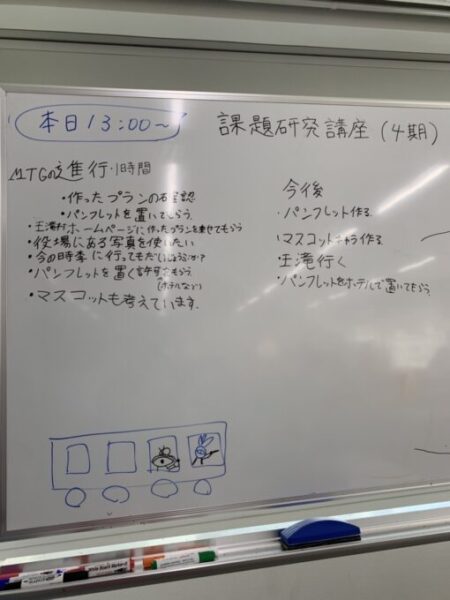 本日13:00～
課題研究講座(4期)
MTGの進行・1時間
・作ったプランの確認
・パンフレットを置いてもらう。
・王滝村ホームページに作ったプランを乗せてもらう
・役場にある写真を使いたい
・今の時季に行ってもだいじょうぶか?
・パンフレットを置く許可をもらう。
(ホテルなど)
・マスコットも考えています。
今後
・パンフレット作る
・マスコットキャラ作る
・王滝行く
・パンフレットをホテルで置いてもらう